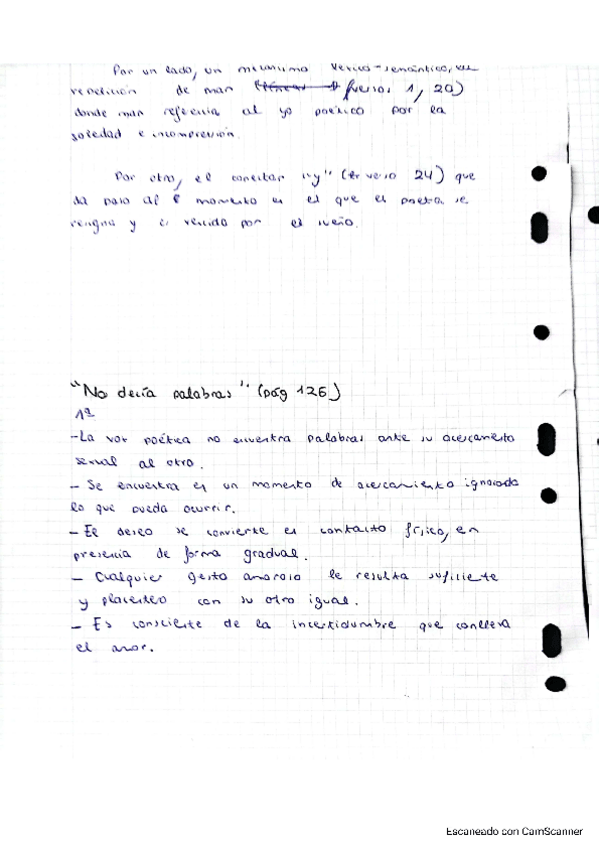 Por un lado, un mecanismo léxico-semántico, la
repetición de mar (versos 1, 20)
donde mar referencia al yo poético por la
soledad e incomprensión.
Por otro, el conector "y" (verso 24) que
da paso al momento en el que el poeta se
resigna y es vencido por el sueño.
"No decía palabras" (pág 126)
1ª
-La voz poética no encuentra palabras ante su acercamiento
sexual al otro.
- Se encuentra en un momento de acercamiento ignorando
lo que pueda ocurrir.
- El deseo se convierte en contacto físico, en
presencia de forma gradual.
- Cualquier gesto amoroso le resulta suficiente
y placentero con su otro igual.
- Es consciente de la incertidumbre que conlleva
el amor.
Escaneado con CamScanner